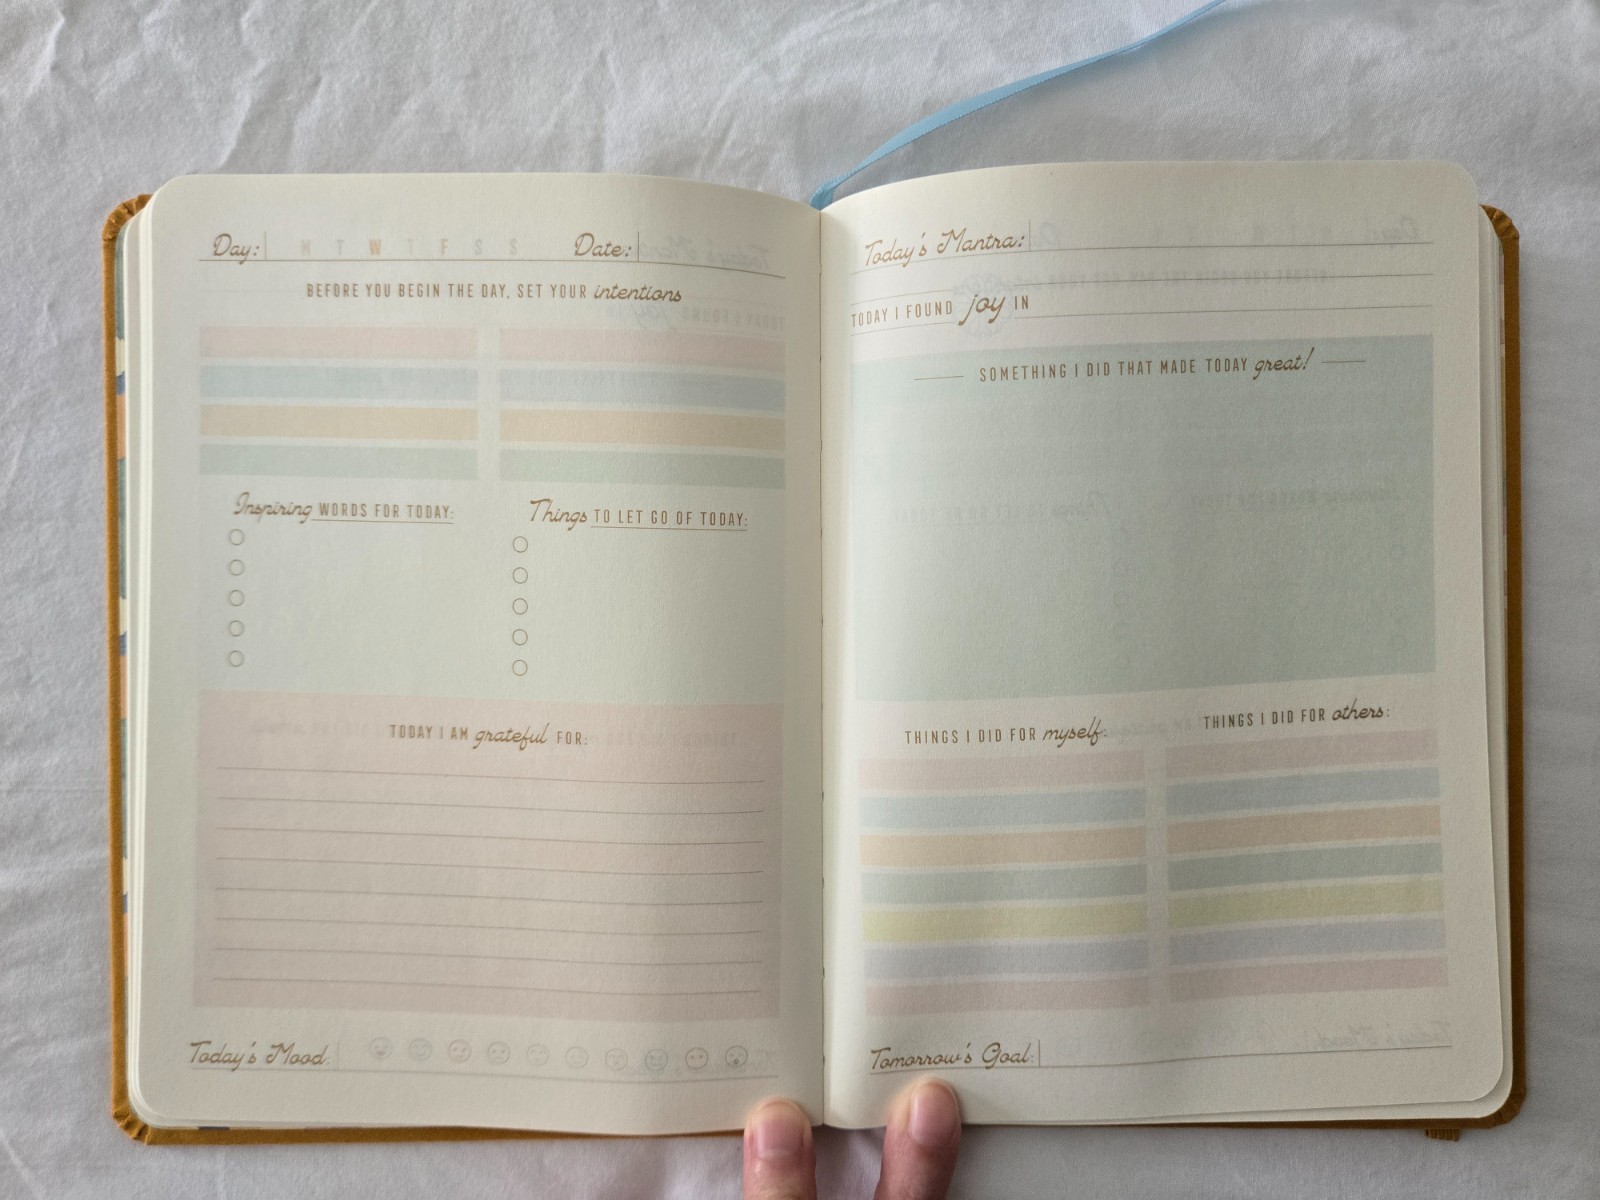 Day: M T W T F S S Date:
BEFORE YOU BEGIN THE DAY, SET YOUR intentions
Inspiring WORDS FOR TODAY:
Things TO LET GO OF TODAY:
TODAY I AM grateful FOR:
Today's Mood:
Today's Mantra:
TODAY I FOUND joy IN
SOMETHING I DID THAT MADE TODAY great!
THINGS I DID FOR myself:
THINGS I DID FOR others:
Tomorrow's Goal: